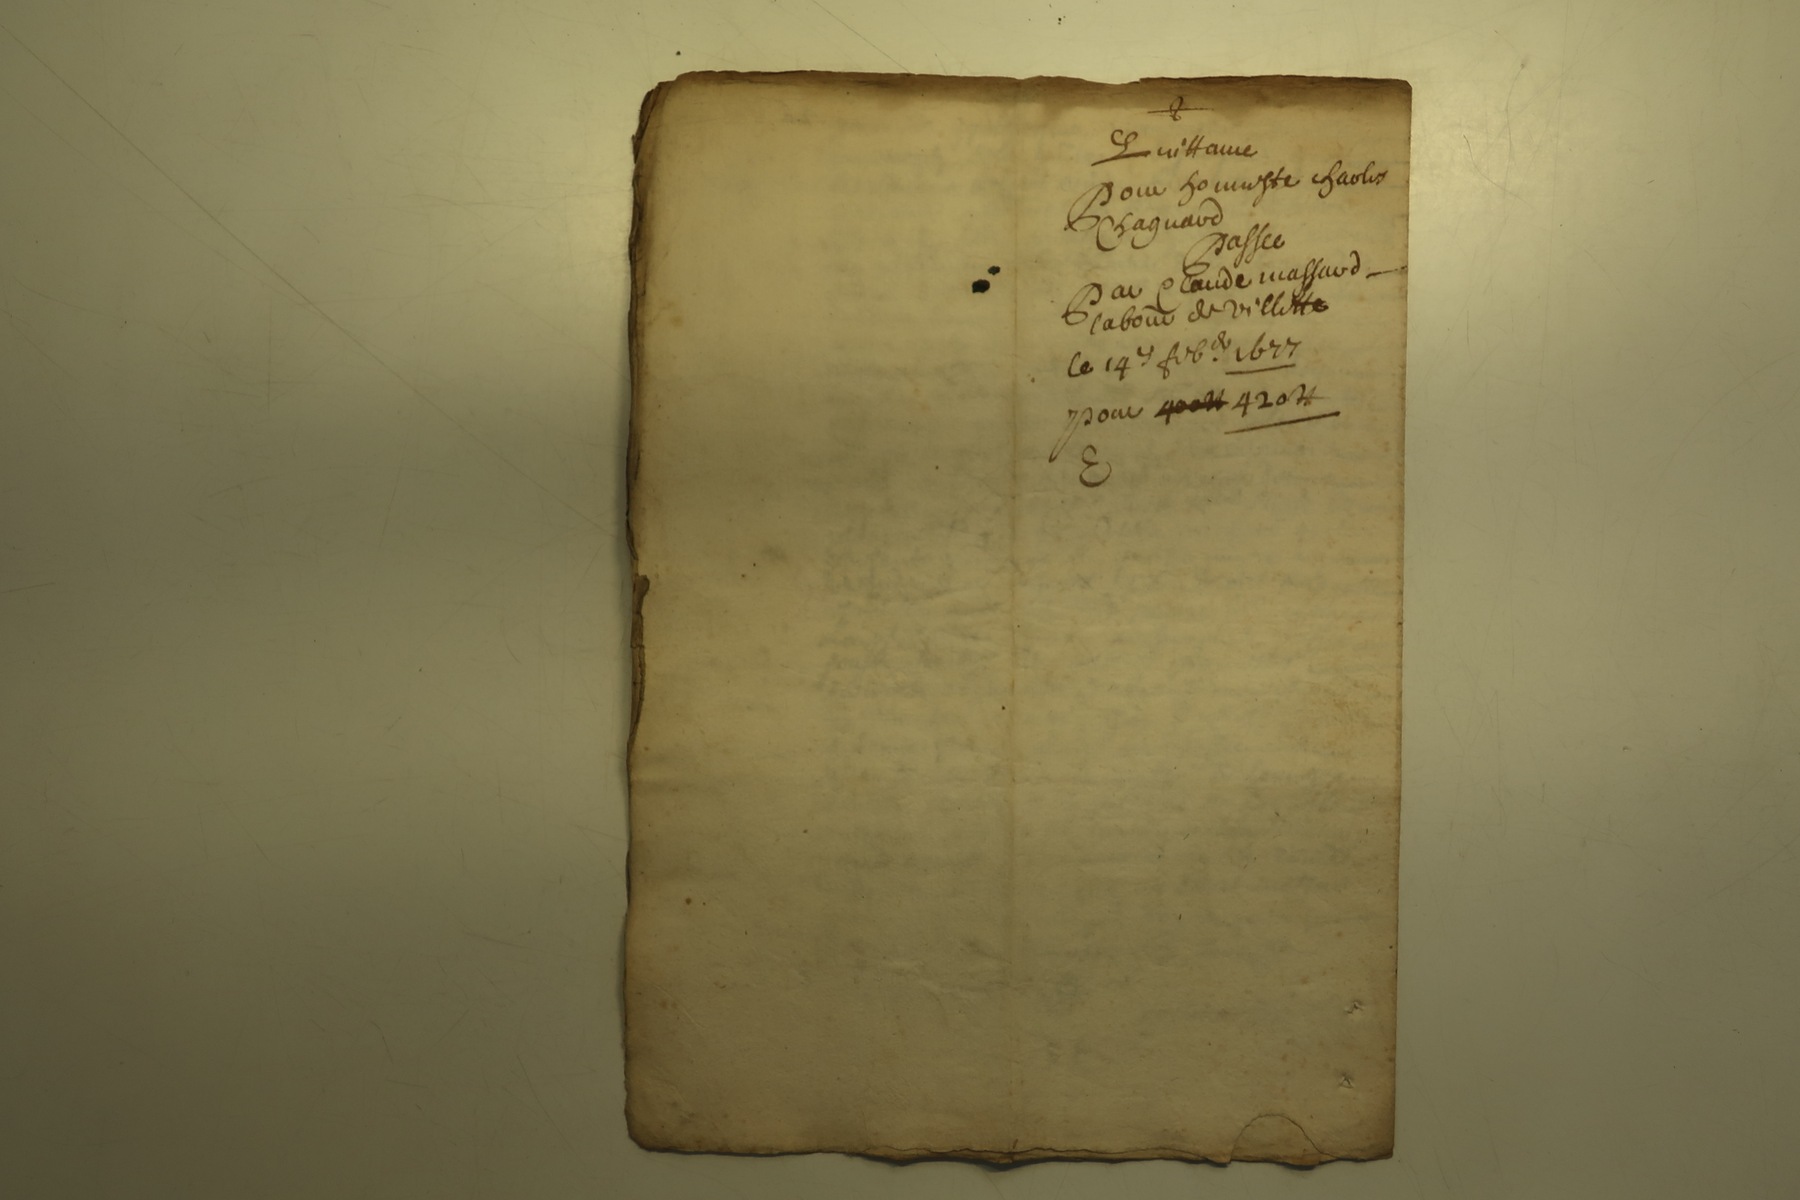 Quittance
Pour honneste charles
Chagnard
Passee
Par Claude massard
labour de villette
le 14e feb. 1677
pour 400 ₶ 420 ₶
E